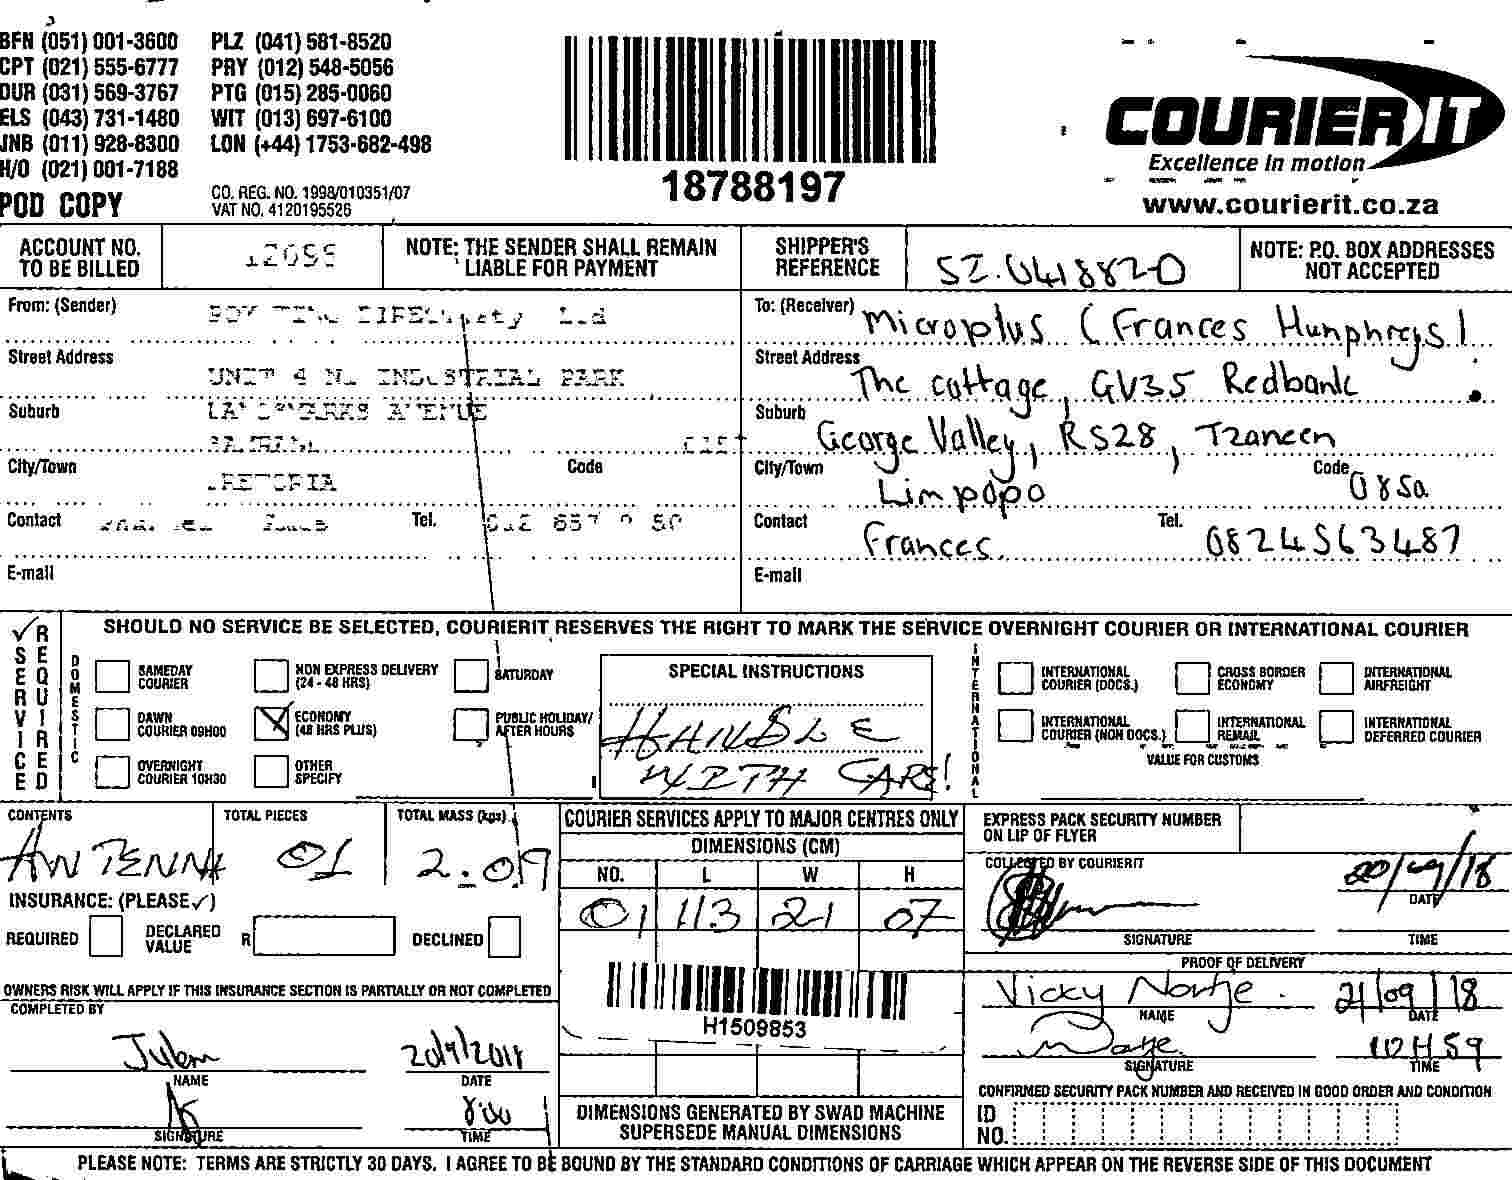 BFN (051) 001-3600 PLZ (041) 581-8520
CPT (021) 555-6777 PRY (012) 548-5056
DUR (031) 569-3767 PTG (015) 285-0060
ELS (043) 731-1480 WIT (013) 697-6100
JNB (011) 928-8300 LON (+44) 1753-682-498
H/O (021) 001-7188
POD COPY
CO. REG. NO. 1998/010351/07
VAT NO. 4120195526
18788197
COURIER IT
Excellence in motion
www.courierit.co.za
ACCOUNT NO. TO BE BILLED
NOTE: THE SENDER SHALL REMAIN LIABLE FOR PAYMENT
SHIPPER'S REFERENCE
NOTE: P.O. BOX ADDRESSES NOT ACCEPTED
From: (Sender)
Street Address
UNIT 4 INDUSTRIAL PARK
Suburb
AVENUE
City/Town
Code
Contact
Tel.
E-mail
To: (Receiver) Microplus (Frances Humphreys)
Street Address The cottage, GV35 Redbank
Suburb George Valley, RS28, Tzaneen
City/Town Limpopo Code 0850
Contact Frances Tel. 0824563487
E-mail
SERVICE REQUIRED
SHOULD NO SERVICE BE SELECTED, COURIERIT RESERVES THE RIGHT TO MARK THE SERVICE OVERNIGHT COURIER OR INTERNATIONAL COURIER
DOMESTIC
SAMEDAY COURIER
NON EXPRESS DELIVERY (24 - 48 HRS)
SATURDAY
DAWN COURIER 09H00
ECONOMY (48 HRS PLUS)
PUBLIC HOLIDAY/ AFTER HOURS
OVERNIGHT COURIER 10H30
OTHER SPECIFY
SPECIAL INSTRUCTIONS
HANDLE
WITH CARE!
INTERNATIONAL
INTERNATIONAL COURIER (DOCS.)
CROSS BORDER ECONOMY
INTERNATIONAL AIRFREIGHT
INTERNATIONAL COURIER (NON DOCS.)
INTERNATIONAL REMAIL
INTERNATIONAL DEFERRED COURIER
VALUE FOR CUSTOMS
CONTENTS
ANTENNA
TOTAL PIECES
01
TOTAL MASS (kgs)
2.09
INSURANCE: (PLEASE ✓)
REQUIRED
DECLARED VALUE R
DECLINED
OWNERS RISK WILL APPLY IF THIS INSURANCE SECTION IS PARTIALLY OR NOT COMPLETED
COMPLETED BY
NAME
20/9/2018
DATE
SIGNATURE
TIME
COURIER SERVICES APPLY TO MAJOR CENTRES ONLY
DIMENSIONS (CM)
NO. L W H
01 113 21 07
H1509853
DIMENSIONS GENERATED BY SWAD MACHINE SUPERSEDE MANUAL DIMENSIONS
EXPRESS PACK SECURITY NUMBER ON LIP OF FLYER
COLLECTED BY COURIERIT
20/09/18
DATE
SIGNATURE
TIME
PROOF OF DELIVERY
Vicky Nortje 21/09/18
NAME
DATE
10H59
SIGNATURE
TIME
CONFIRMED SECURITY PACK NUMBER AND RECEIVED IN GOOD ORDER AND CONDITION
ID NO.
PLEASE NOTE: TERMS ARE STRICTLY 30 DAYS. I AGREE TO BE BOUND BY THE STANDARD CONDITIONS OF CARRIAGE WHICH APPEAR ON THE REVERSE SIDE OF THIS DOCUMENT